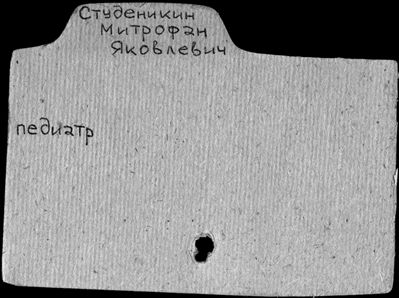 Студеникин
Митрофан
Яковлевич
педиатр